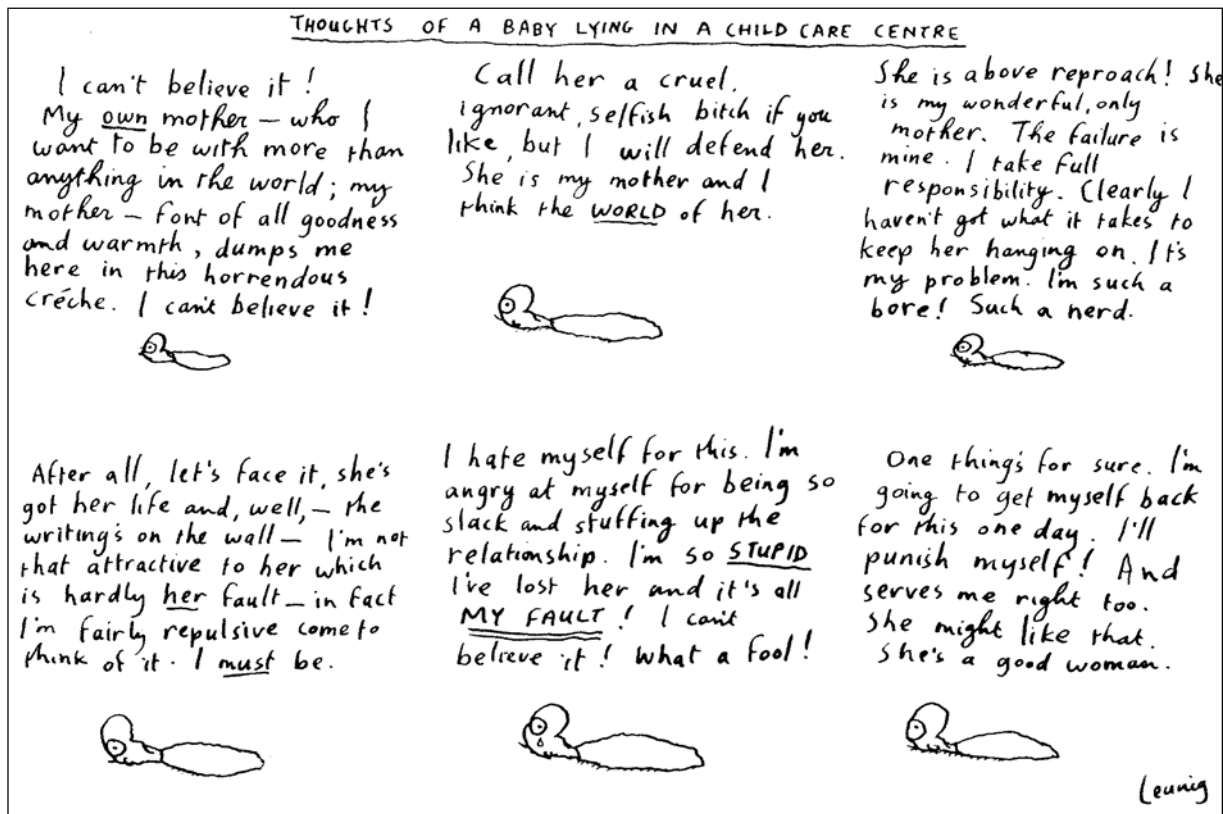 THOUGHTS OF A BABY LYING IN A CHILD CARE CENTRE
I can't believe it!
My own mother – who I
want to be with more than
anything in the world; my
mother – font of all goodness
and warmth, dumps me
here in this horrendous
créche. I can't believe it!
Call her a cruel,
ignorant, selfish bitch if you
like, but I will defend her.
She is my mother and I
think the WORLD of her.
She is above reproach! She
is my wonderful, only
mother. The failure is
mine. I take full
responsibility. Clearly I
haven't got what it takes to
keep her hanging on. It's
my problem. I'm such a
bore! Such a nerd.
After all, let's face it, she's
got her life and, well, – the
writing's on the wall – I'm not
that attractive to her which
is hardly her fault – in fact
I'm fairly repulsive come to
think of it. I must be.
I hate myself for this. I'm
angry at myself for being so
slack and stuffing up the
relationship. I'm so STUPID
I've lost her and it's all
MY FAULT! I can't
believe it! What a fool!
One thing's for sure. I'm
going to get myself back
for this one day. I'll
punish myself! And
serves me right too.
She might like that.
She's a good woman.
Leunig